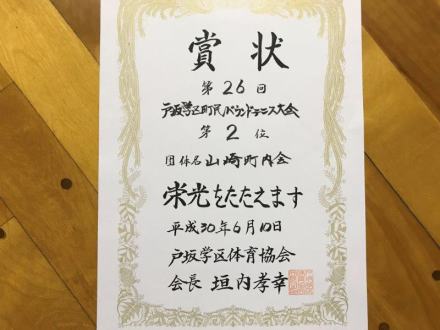 賞状
第26回
戸坂学区町民バウンドテニス大会
第2位
団体名 山崎町内会
栄光をたたえます
平成30年6月10日
戸坂学区体育協会
会長 垣内孝幸